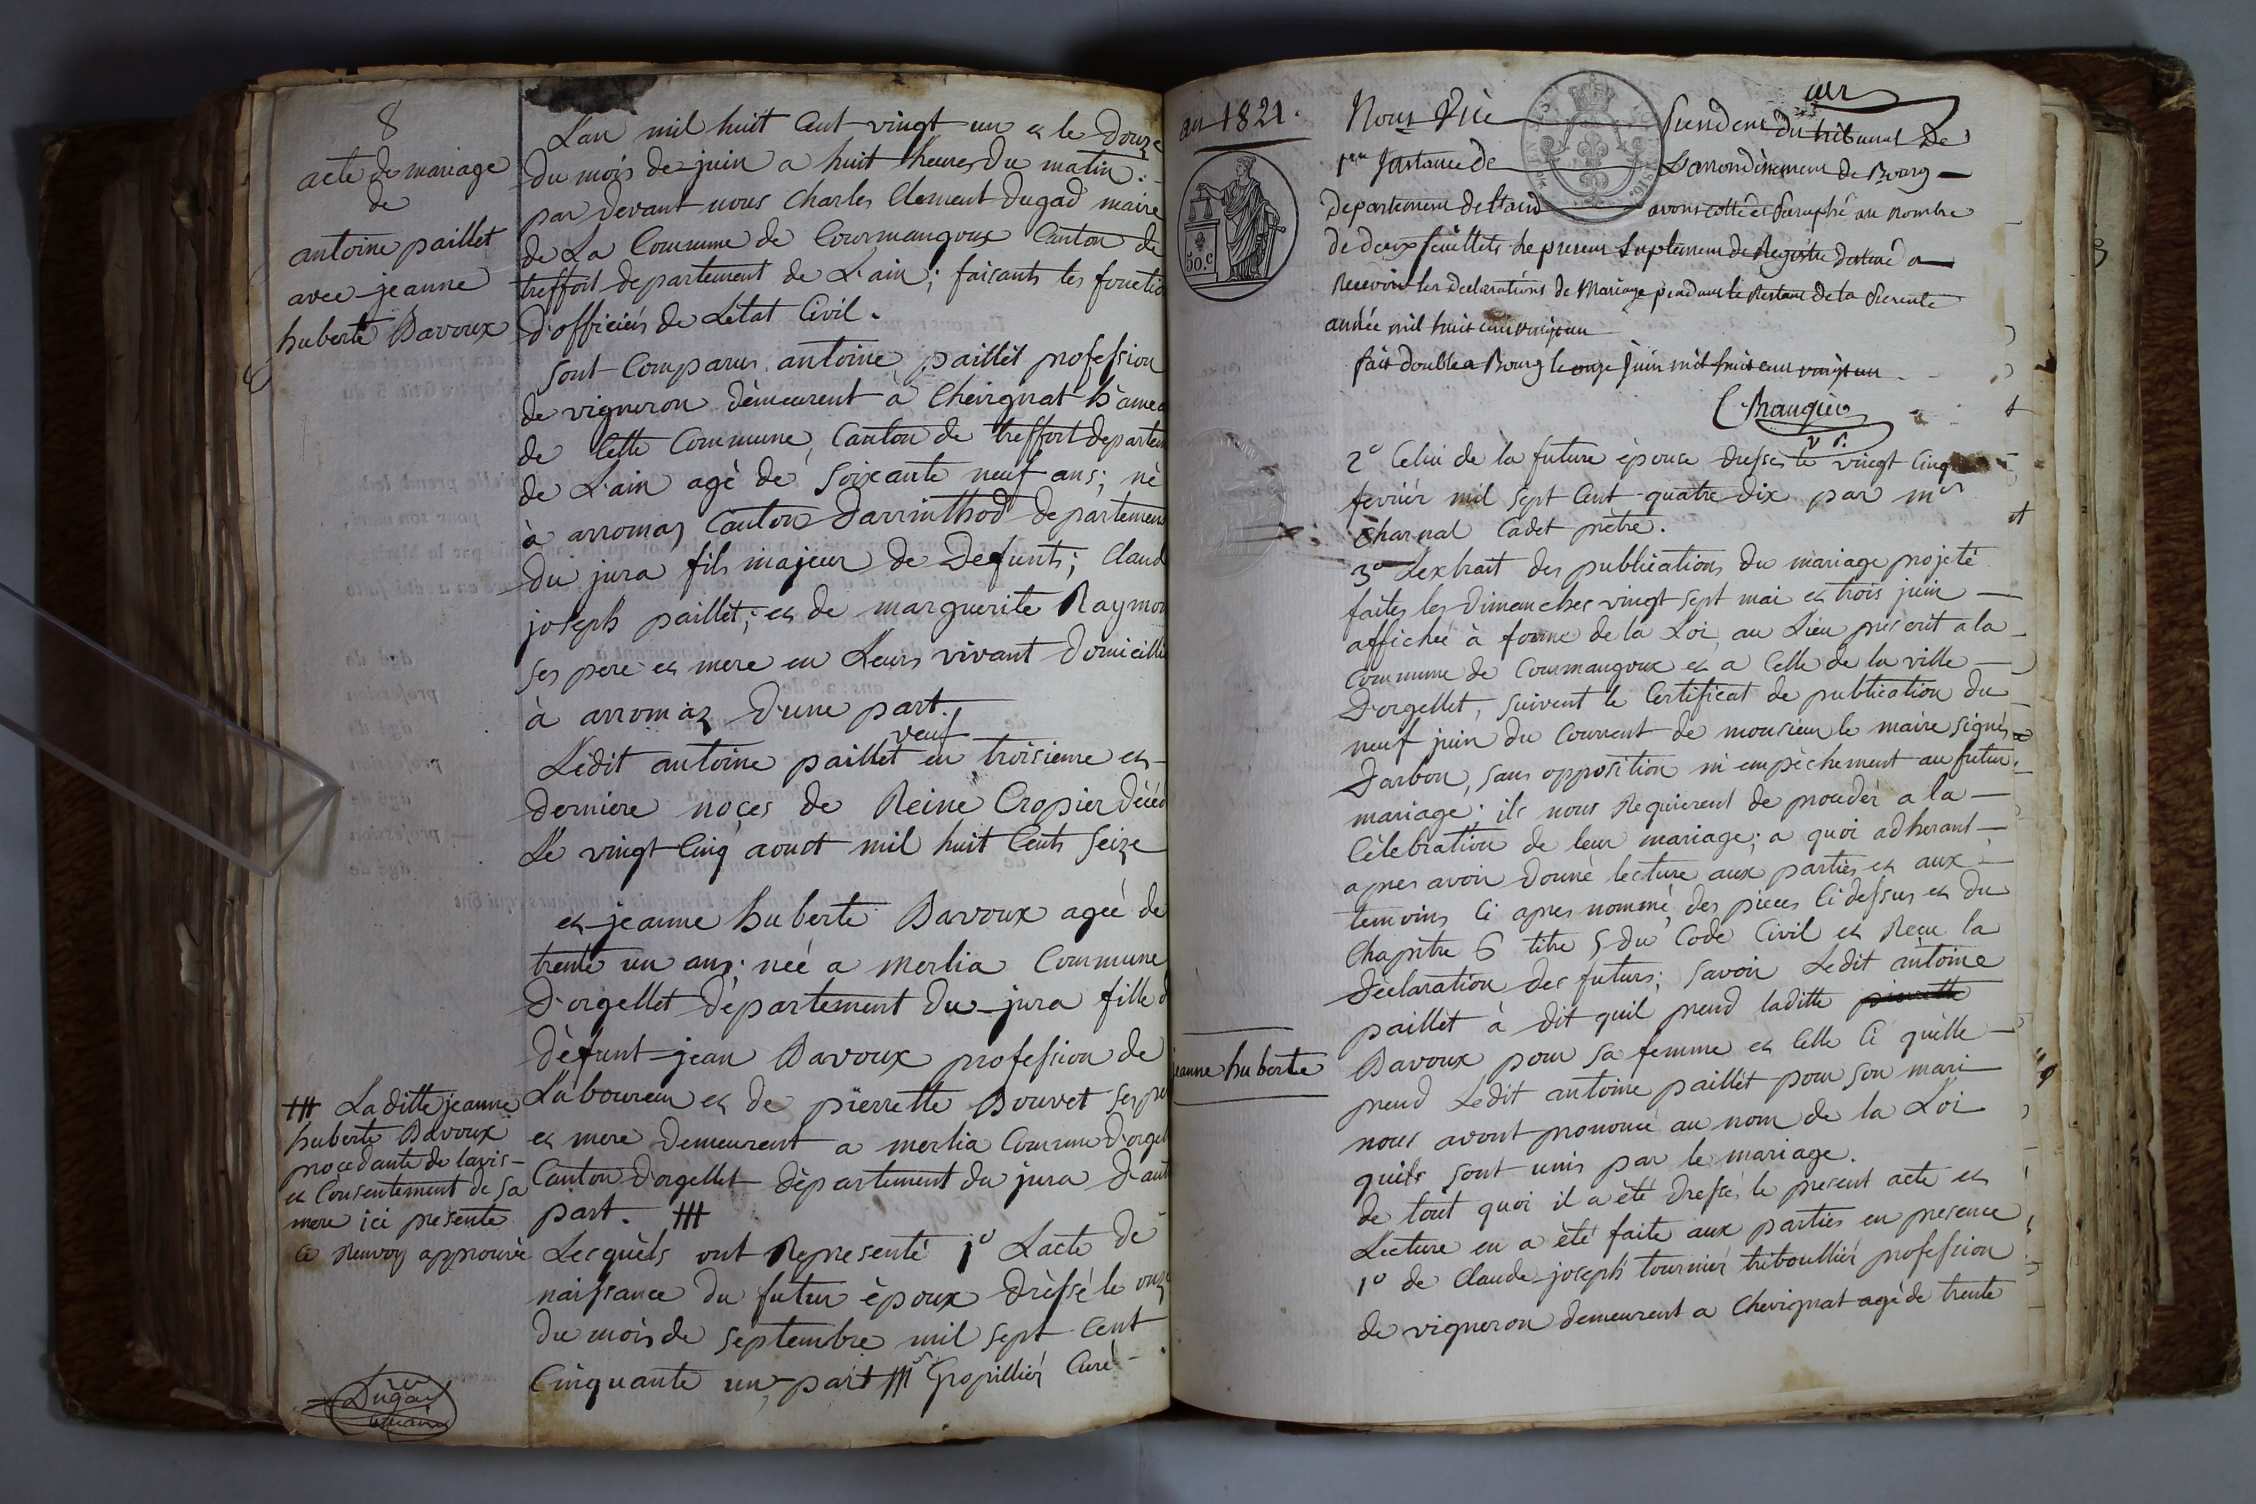 8
acte de mariage
de
antoine paillet
avec jeanne
huberte Bavoux
Lan mil huit Cent vingt un et le Douze
du mois de juin a huit heures du matin.
par devant nous Charles Clement Dugad maire
de La Commune de Courmangoux Canton de
treffort departement de L'ain; faisants les fonctio
D'officiers de Létat Civil.
Sont Comparus antoine paillet profession
de vigneron dèmeurent à Chevignat hàmea
de Cette Commune, Canton de treffort departem
de L'ain agè de soixante neuf ans; nè
à arromaz Canton Darinthod departement
du jura fils majeur de Defunts; Claud
joseph paillet; et de marguerite Raymon
ses pere et mere en Leurs vivant domicillie
à arromaz D'une part.
veuf
Lédit antoine paillet en troisieme et
derniere noces de Reine Cropier Décéd
Le vingt Cinq aoust mil huit Cents Seize
et jeanne huberte Bavoux ageé de
trente un ans; neé a merlia Commune
D'orgellet département du jura fille d
dèfunt jean Bavoux profession de
Laboureur et de pierrette Bouvet ses pe
et mere demeurent a merlia Commune D'orgel
Canton D'orgellet dèpartement du jura D'aut
part. ###
Lesquèls ont Representé 1° Lacte de
naissance du futeur èpoux drèssé le onz
du mois de septembre mil sept Cent
Cinquante un, part Mr Gropillier Curé
### Laditte jeanne
huberte Bavoux
procedante de lavis
et Consentement de sa
mere ici presente
Ce Renvoy approuvè
Dugad
maire
an 1821.
50.c
Nous Vice president du tribunal de
1ere Instance de L'arrondissement de Bourg
departement de l'ain avons cotté et Paraphé au nombre
de deux feuillets le present Suplement de Registre destiné a
Recevoir les declarations de Mariage pendant le Restant de la presente
année mil huit cent vingt un
fait double a Bourg le onze Juin mil huit cent vingt un
v. p.
2° Celui de la future èpouse dressé le vingt Cinq
fevrier mil sept Cent quatre dix par mr
Charnal Cadet prètre.
3° Lextrait des publications du mariage projeté
faites les Dimenches vingt sept mai et trois juin
affichée à forme de la Loi au Lieu prescrit a la
Commune de Courmangoux et a Celle de la ville
D'orgellet, suivent le Certificat de publication du
neuf juin du Courrent de monsieur le maire signés
Darbon, sans opposition ni empèchement au futur
mariage; ils nous Requierent de proceder a la
Cèlebration de leur mariage; a quoi adherant
apres avoir donnè lecture aux parties et aux
temoins Ci apres nommé, des pieces Ci dessus et du
Chapitre 6 titre 5 du Code Civil et Recu la
Declaration des futurs; savoir Ledit antoine
paillet à dit quil prend laditte pierrette
jeanne huberte
Bavoux pour sa femme et Celle Ci quèlle
prend Ledit antoine paillèt pour son mari
nous avont prononcé au nom de la Loi
quils sont unis par le mariage.
de tout quoi il a èté dressé le present acte et
Lecture en a èté faite aux parties en presence
1° de Claude joseph tournier triboullier profession
de vigneron demeurent a Chevignat agè de trente